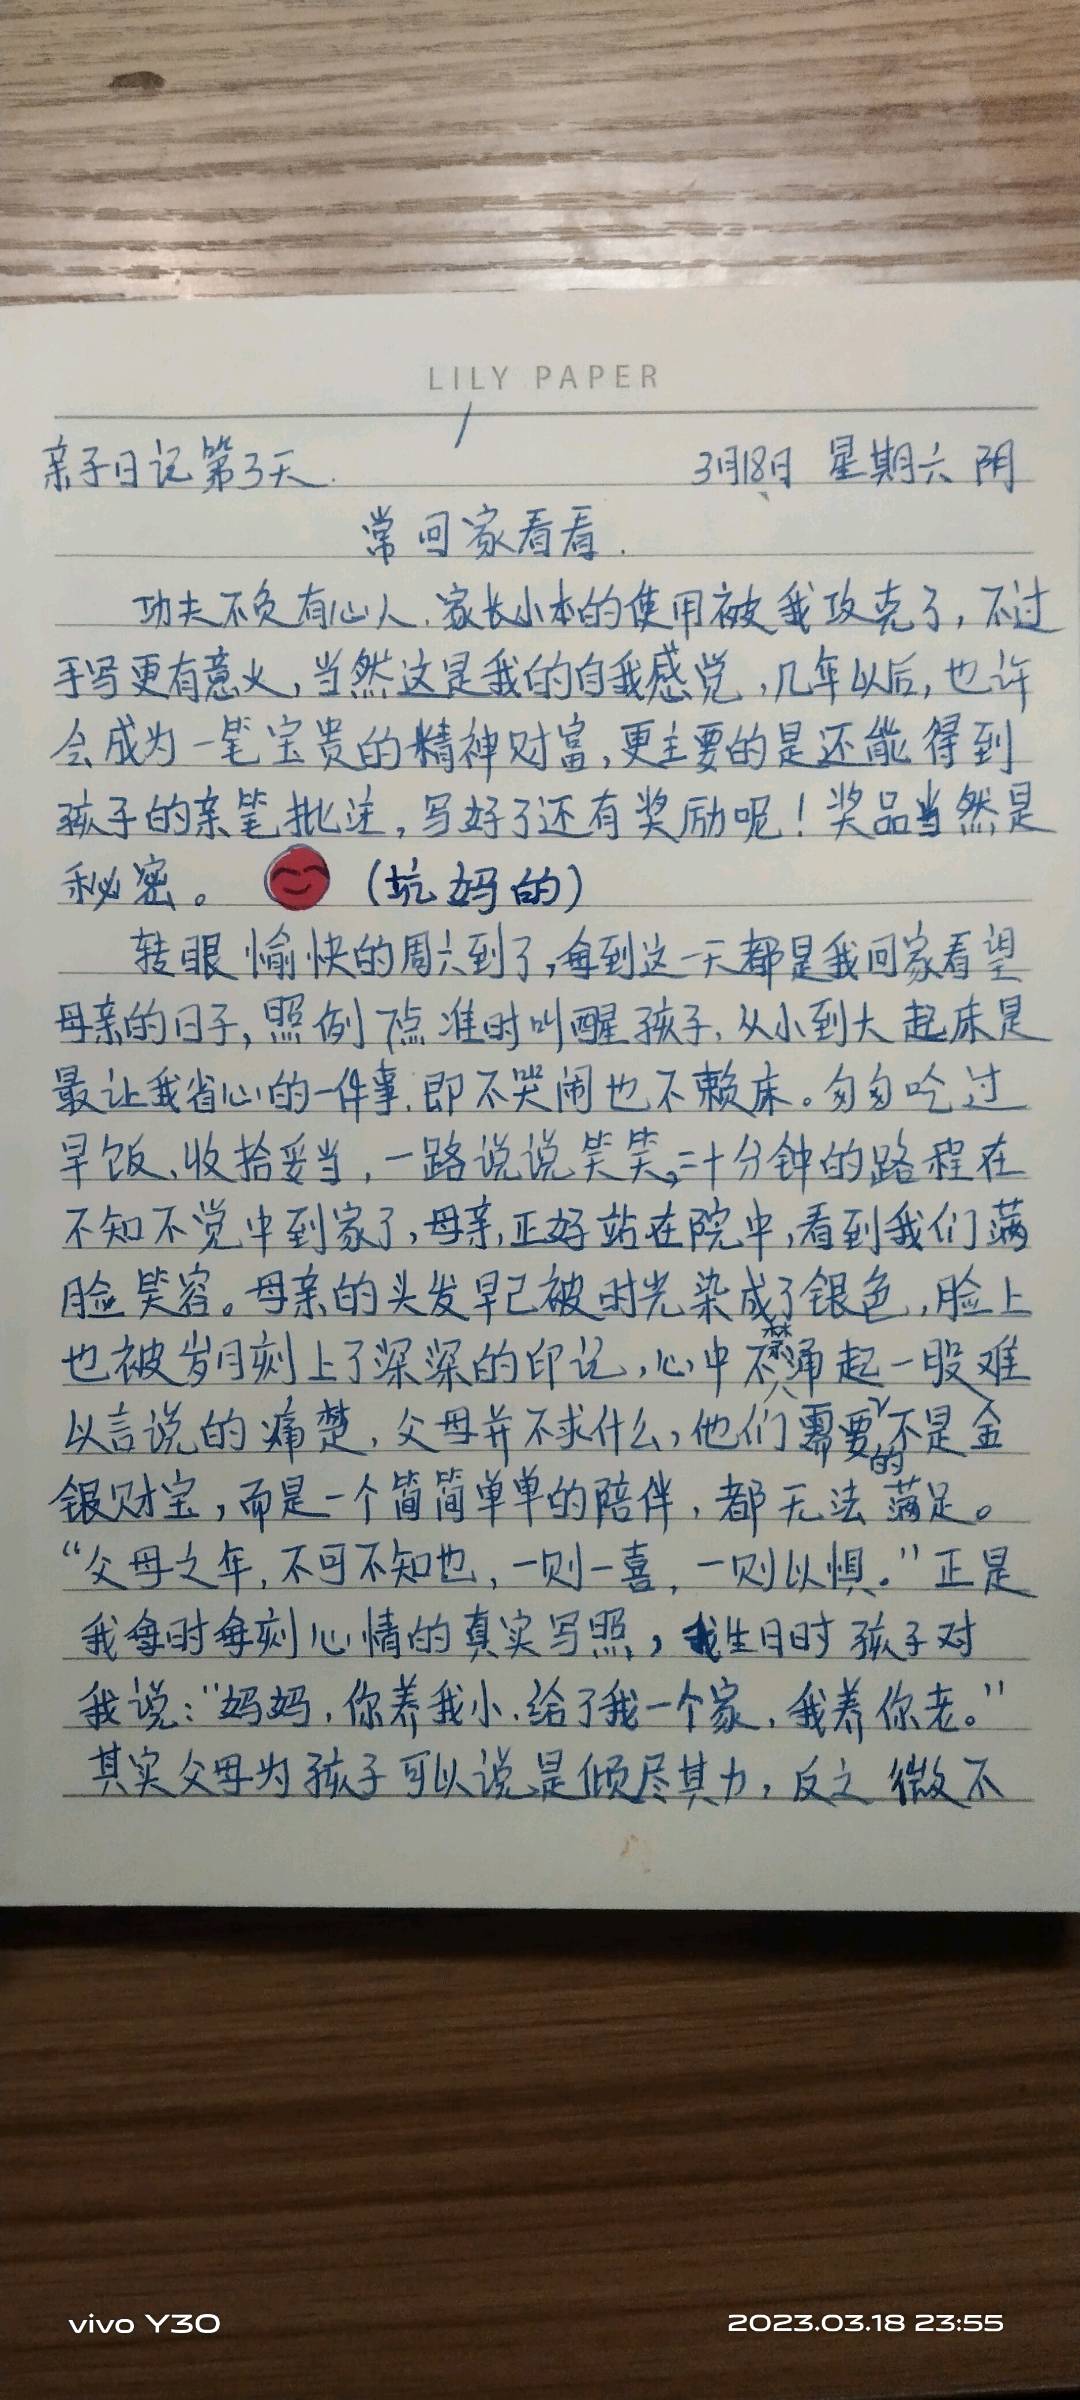 LILY PAPER
亲子日记第3天. 3月18日 星期六 阴
常回家看看.
功夫不负有心人.家长小本的使用被我攻克了,不过
手写更有意义,当然这是我的自我感觉,几年以后,也许
会成为一笔宝贵的精神财富,更主要的是还能得到
孩子的亲笔批注,写好了还有奖励呢!奖品当然是
秘密。 (坑妈的)
转眼愉快的周六到了,每到这一天都是我回家看望
母亲的日子,照例7点准时叫醒孩子.从小到大起床是
最让我省心的一件事.即不哭闹也不赖床。匆匆吃过
早饭、收拾妥当,一路说说笑笑,二十分钟的路程在
不知不觉中到家了,母亲正好站在院中,看到我们满
脸笑容。母亲的头发早已被时光染成了银色,脸上
也被岁月刻上了深深的印记,心中不禁涌起一股难
以言说的痛楚,父母并不求什么,他们需要的不是金
银财宝,而是一个简简单单的陪伴,都无法满足。
“父母之年,不可不知也,一则一喜,一则以惧.”正是
我每时每刻心情的真实写照,我生日时孩子对
我说:“妈妈,你养我小.给了我一个家,我养你老。”
其实父母为孩子可以说是倾尽其力,反之微不
vivo Y30
2023.03.18 23:55